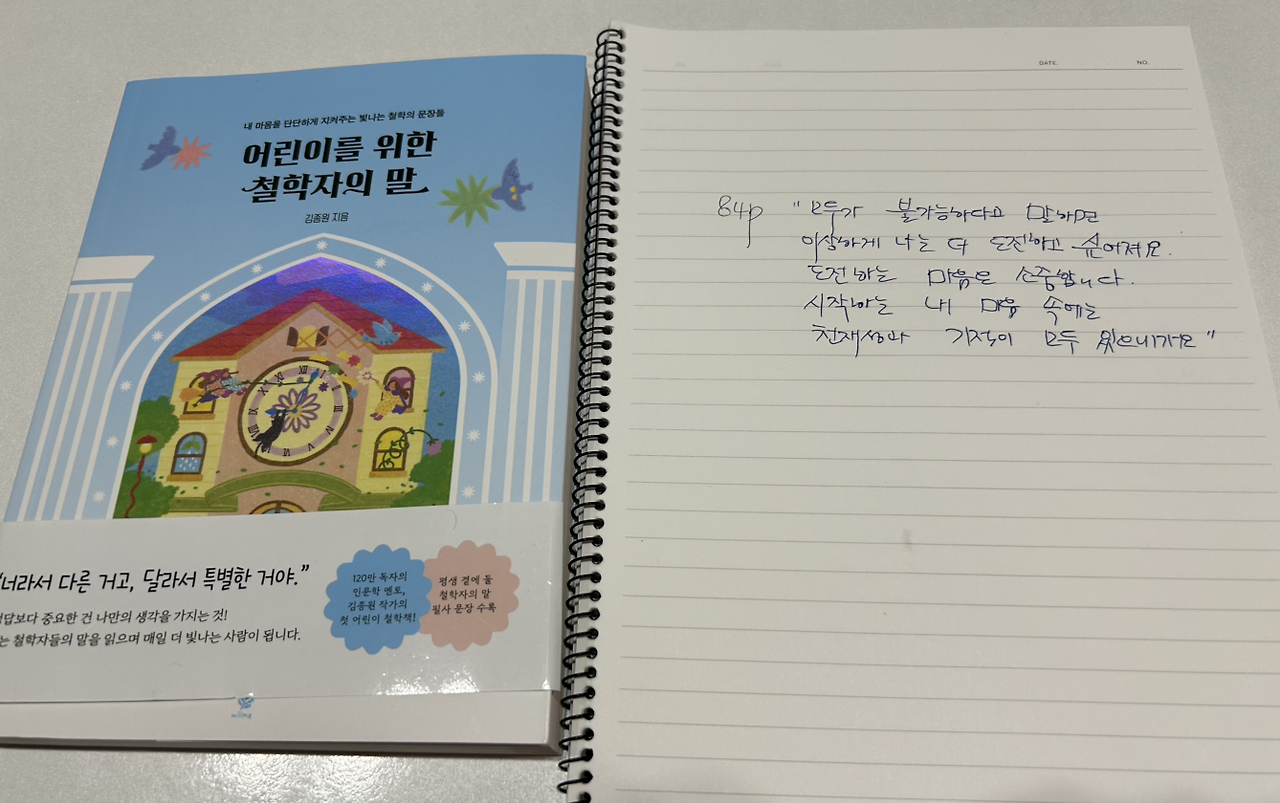 내 마음을 단단하게 지켜주는 빛나는 철학의 문장들
어린이를 위한
철학자의 말
김종원 지음
XII
I
II
III
IV
V
VI
VII
VIII
IX
X
"너라서 다른 거고, 달라서 특별한 거야."
답보다 중요한 건 나만의 생각을 가지는 것!
는 철학자들의 말을 읽으며 매일 더 빛나는 사람이 됩니다.
120만 독자의
인문학 멘토,
김종원 작가의
첫 어린이 철학책!
평생 곁에 둘
철학자의 말
필사 문장 수록
DATE. NO.
84p "모두가 불가능하다고 말하면
이상하게 나는 더 도전하고 싶어져요.
도전하는 마음은 소중합니다.
시작하는 내 마음 속에는
천재성과 기적이 모두 있으니까요"